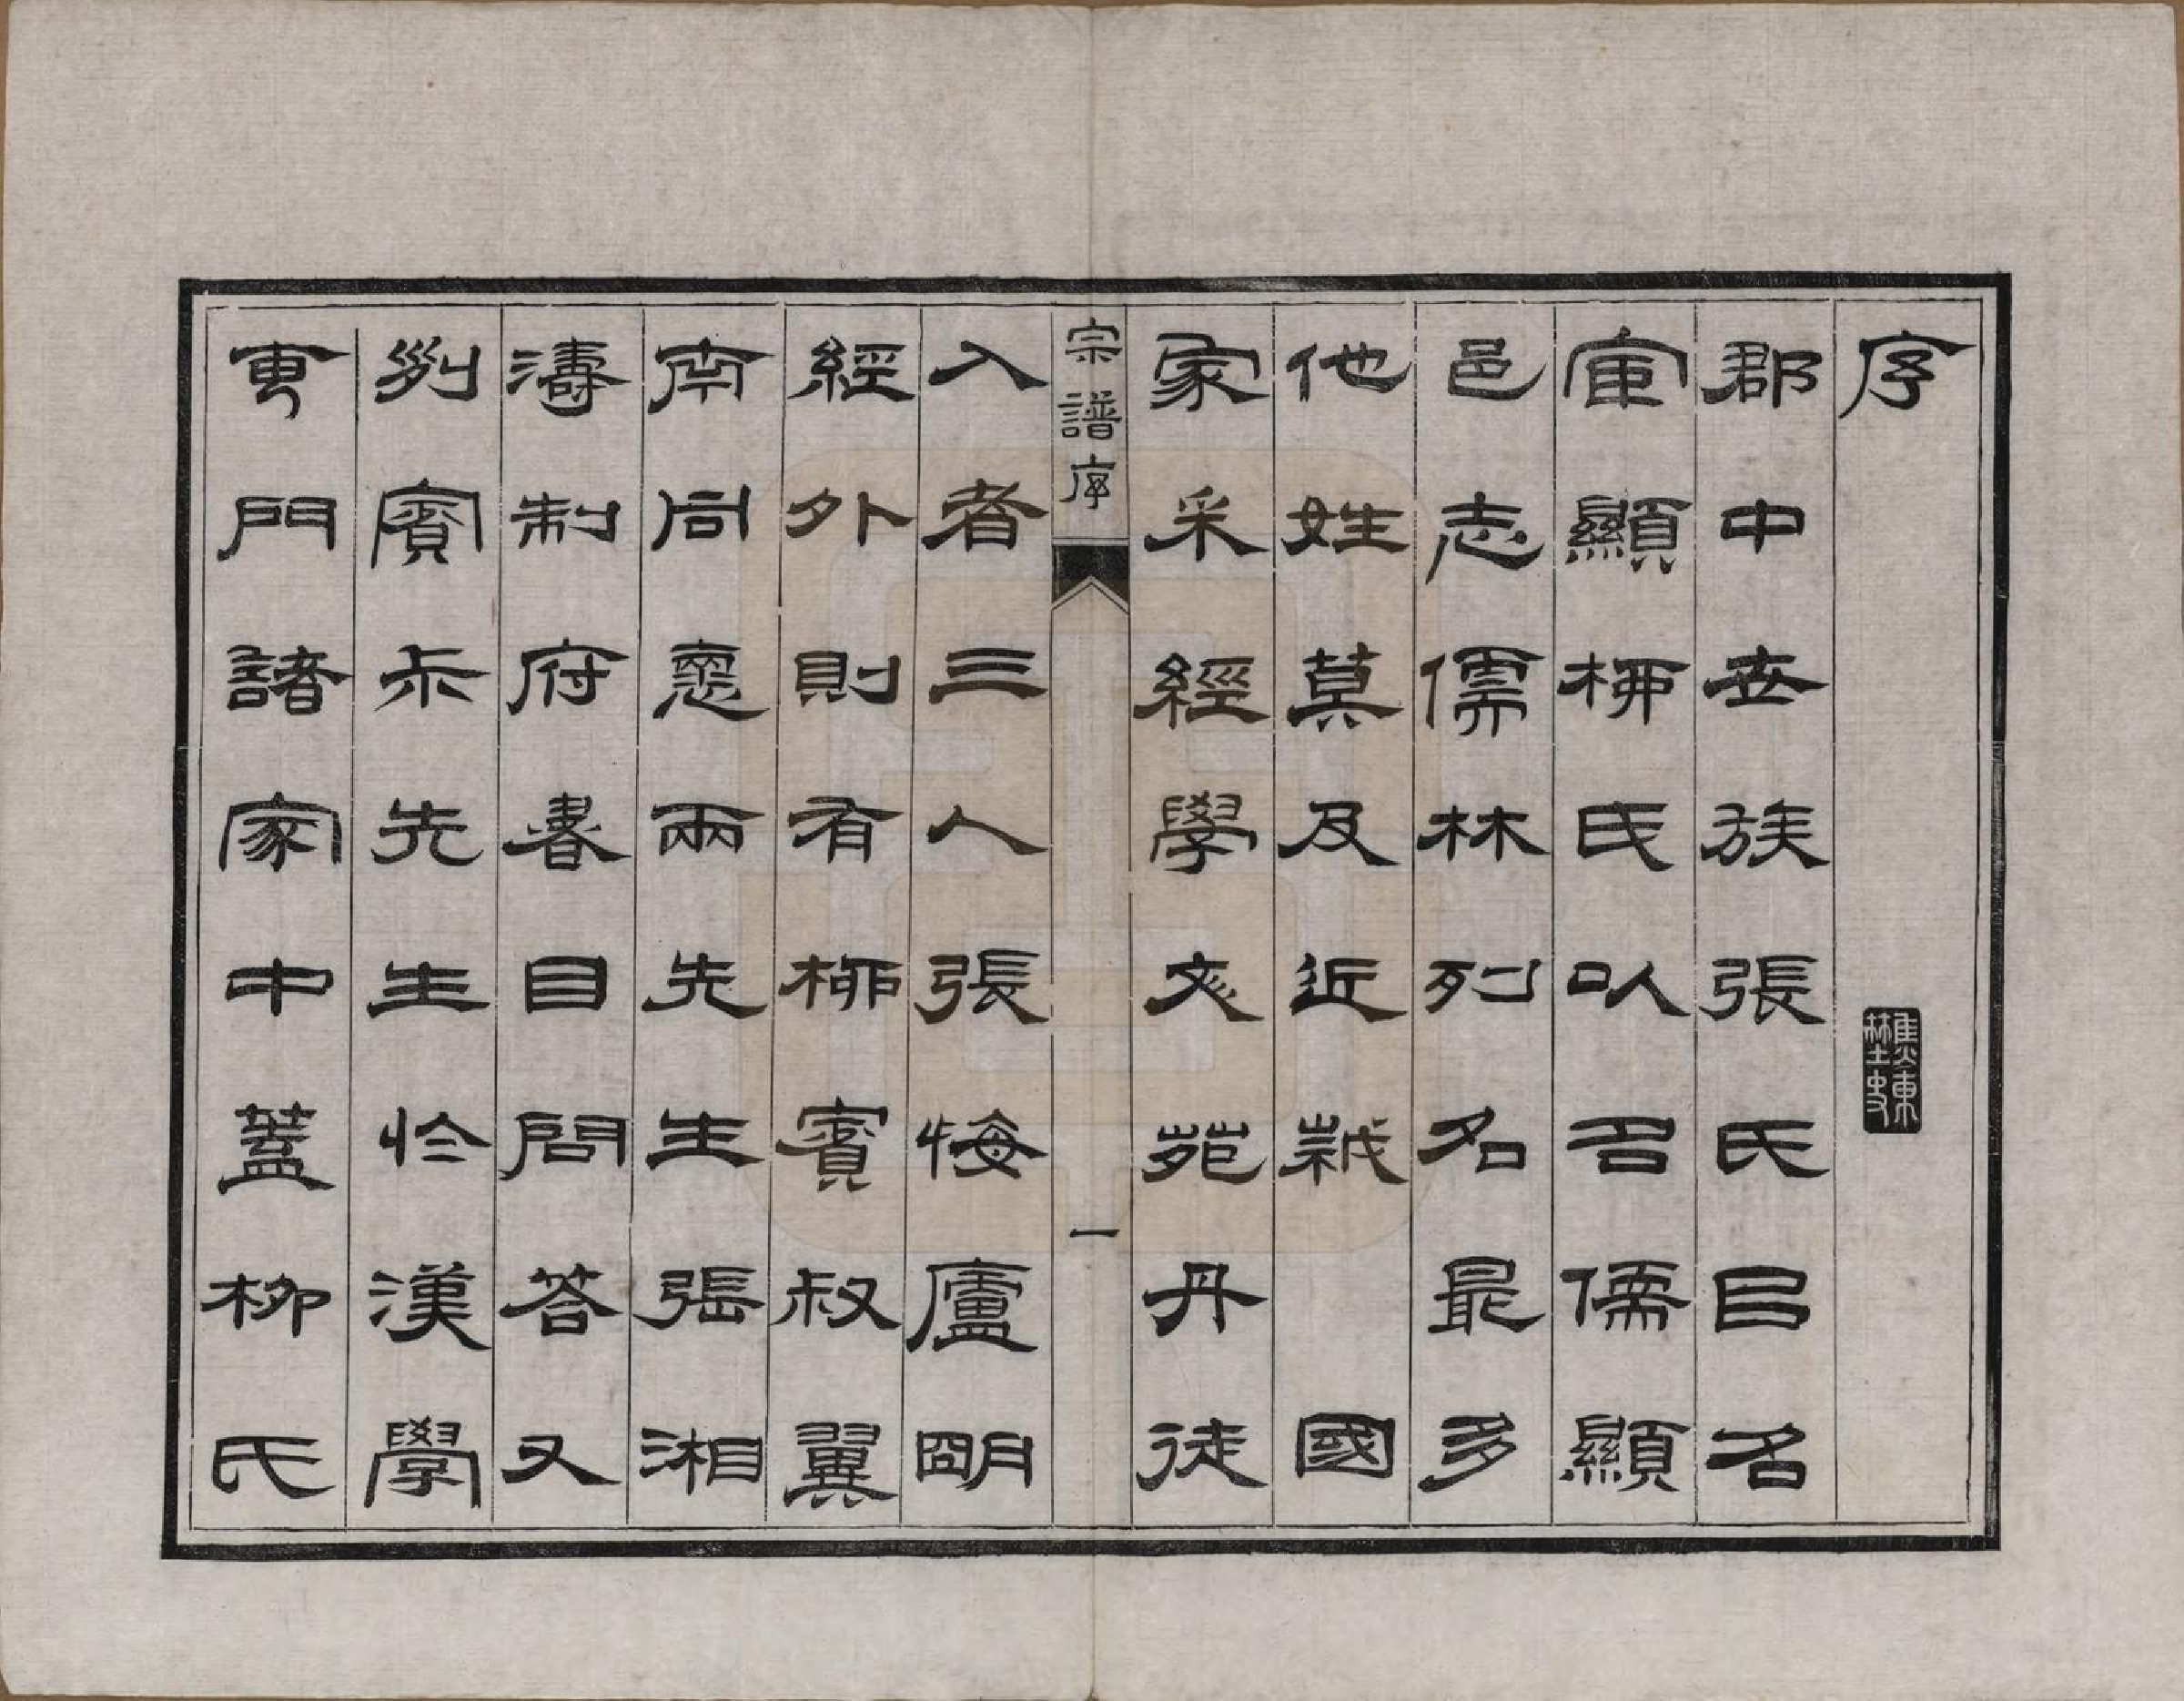 序
焦東埜史
郡中世族張氏㠯名
宦顯柳氏㕥名儒顯
邑志儒林列名最多
他姓莫及近歲　國
家采經學彣苑丹徒
宗譜序
一
入者三人張悔廬朙
經外則有柳賓叔翼
南同悳兩先生張湘
濤制府書目答問又
列賓尗先生於漢學
專門諸家中蓋柳氏